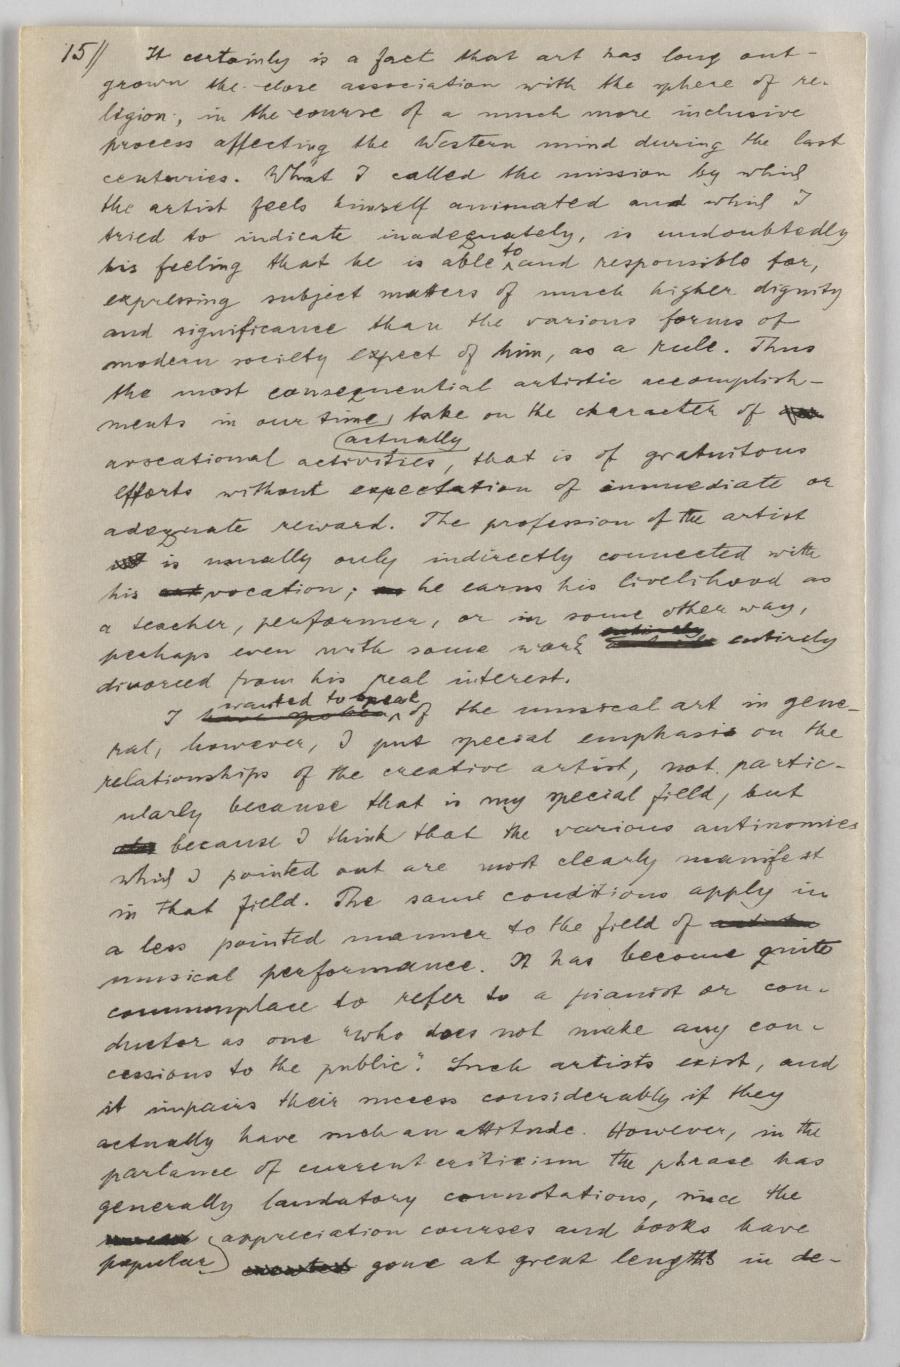 15// It certainly is a fact that art has long out-
grown the close association with the sphere of re-
ligion, in the course of a much more inclusive
process affecting the Western mind during the last
centuries. What I called the mission by which
the artist feels himself animated and which I
tried to indicate inadequately, is undoubtedly
his feeling that he is able to and responsible for,
expressing subject matters of much higher dignity
and significance than the various forms of
modern society expect of him, as a rule. Thus
the most consequential artistic accomplish-
ments in our time, take on the character of
actually
avocational activities, that is of gratuitous
efforts without expectation of immediate or
adequate reward. The profession of the artist
is usually only indirectly connected with
his vocation; he earns his livelihood as
a teacher, performer, or in some other way,
perhaps even with some work entirely
divorced from his real interest.
wanted to speak
I have spoken of the musical art in gene-
ral, however, I put special emphasis on the
relationships of the creative artist, not partic-
ularly because that is my special field, but
because I think that the various antinomies
which I pointed out are most clearly manifest
in that field. The same conditions apply in
a less pointed manner to the field of
musical performance. It has become quite
commonplace to refer to a pianist or con-
ductor as one "who does not make any con-
cessions to the public". Such artists exist, and
it impairs their success considerably if they
actually have such an attitude. However, in the
parlance of current criticism the phrase has
generally laudatory connotations, since the
appreciation courses and books have
popular gone at great lengths in de-